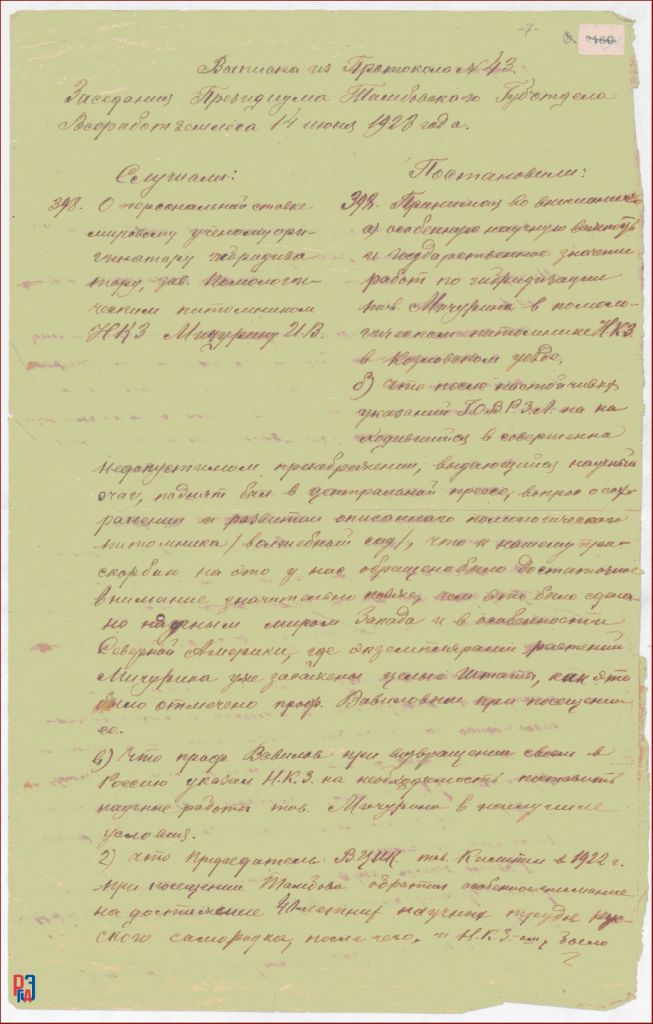 -7-
2160
Выписка из Протокола № 43.
Заседания Президиума Тамбовского Губотдела
Всеработземлеса 14 июня 1923 года.
Слушали:
398. О персональной ставке
мировому ученому ори-
гинатору гибридиза-
тору, зав. Помологи-
ческим питомником
НКЗ Мичурину И.В.
Постановили:
398. Принимая во внимание:
а) особенную научную важность
и государственное значение
работ по гибридизации
тов. Мичурина в помоло-
гическом питомнике Н.К.З.
в Козловском уезде,
б) что после настойчивых
указаний на на-
ходившийся в совершенно
недопустимом пренебрежении, выдающийся научный
очаг, поднят был в центральной прессе, вопрос о сох-
ранении и развитии описанного помологического
питомника /волшебный сад/, что к нашему при-
скорбию на это у нас обращено было достаточное
внимание значительно позже, чем это было сдела-
но научным миром Запада и в особенности
Северной Америки, где экземплярами растений
Мичурина уже засажены целые Штаты, как это
было отмечено проф. Вавиловым при посещении
ее.
в) Что проф. Вавилов при возвращении своем в
Россию указал Н.К.З. на необходимость поставить
научные работы тов. Мичурина в наилучшие
условия.
г) что Председатель ВЦИК тов. Калинин в 1922 г.
при посещении Тамбова обратил особенное внимание
на достижение 40-летних научных трудов рус-
ского самородка, после чего, и Н.К.З-ем, было
РГАЭ